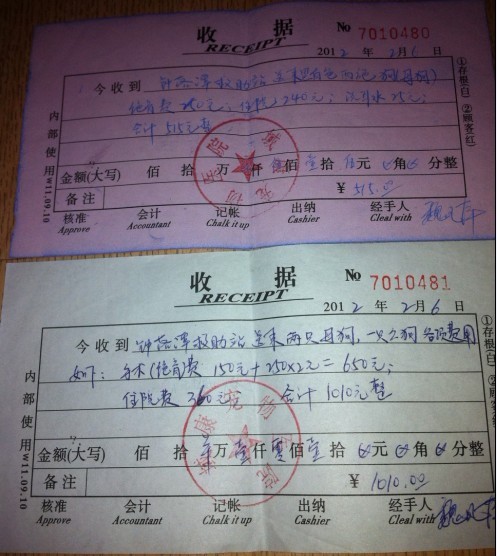 收 据
RECEIPT
No 7010480
2012 年 2月6日
今收到 钟燕萍救助站
绝育费 250元; 住院 240元; 消炎水 25元;
合计 515元整
金额(大写) 佰 拾 万 仟 伍佰 壹拾 伍元 角 分整
备注 ¥ 515.00
核准 会计 记帐 出纳 经手人
Approve Accountant Chalk it up Cashier Cleal with
内部使用W11.09.10
①存根(白) ②顾客(红)
收 据
RECEIPT
No 7010481
2012 年 2月6日
今收到 钟燕萍救助站 送来两只母狗,一只公狗 各项费用
如下: 手术(绝育)费 150元+250X2元=650元;
住院费 360元 合计 1010元整
金额(大写) 佰 拾 万 壹仟 零佰 壹拾 元 角 分整
备注 ¥ 1010.00
核准 会计 记帐 出纳 经手人
Approve Accountant Chalk it up Cashier Cleal with
内部使用W11.09.10
①存根(白)